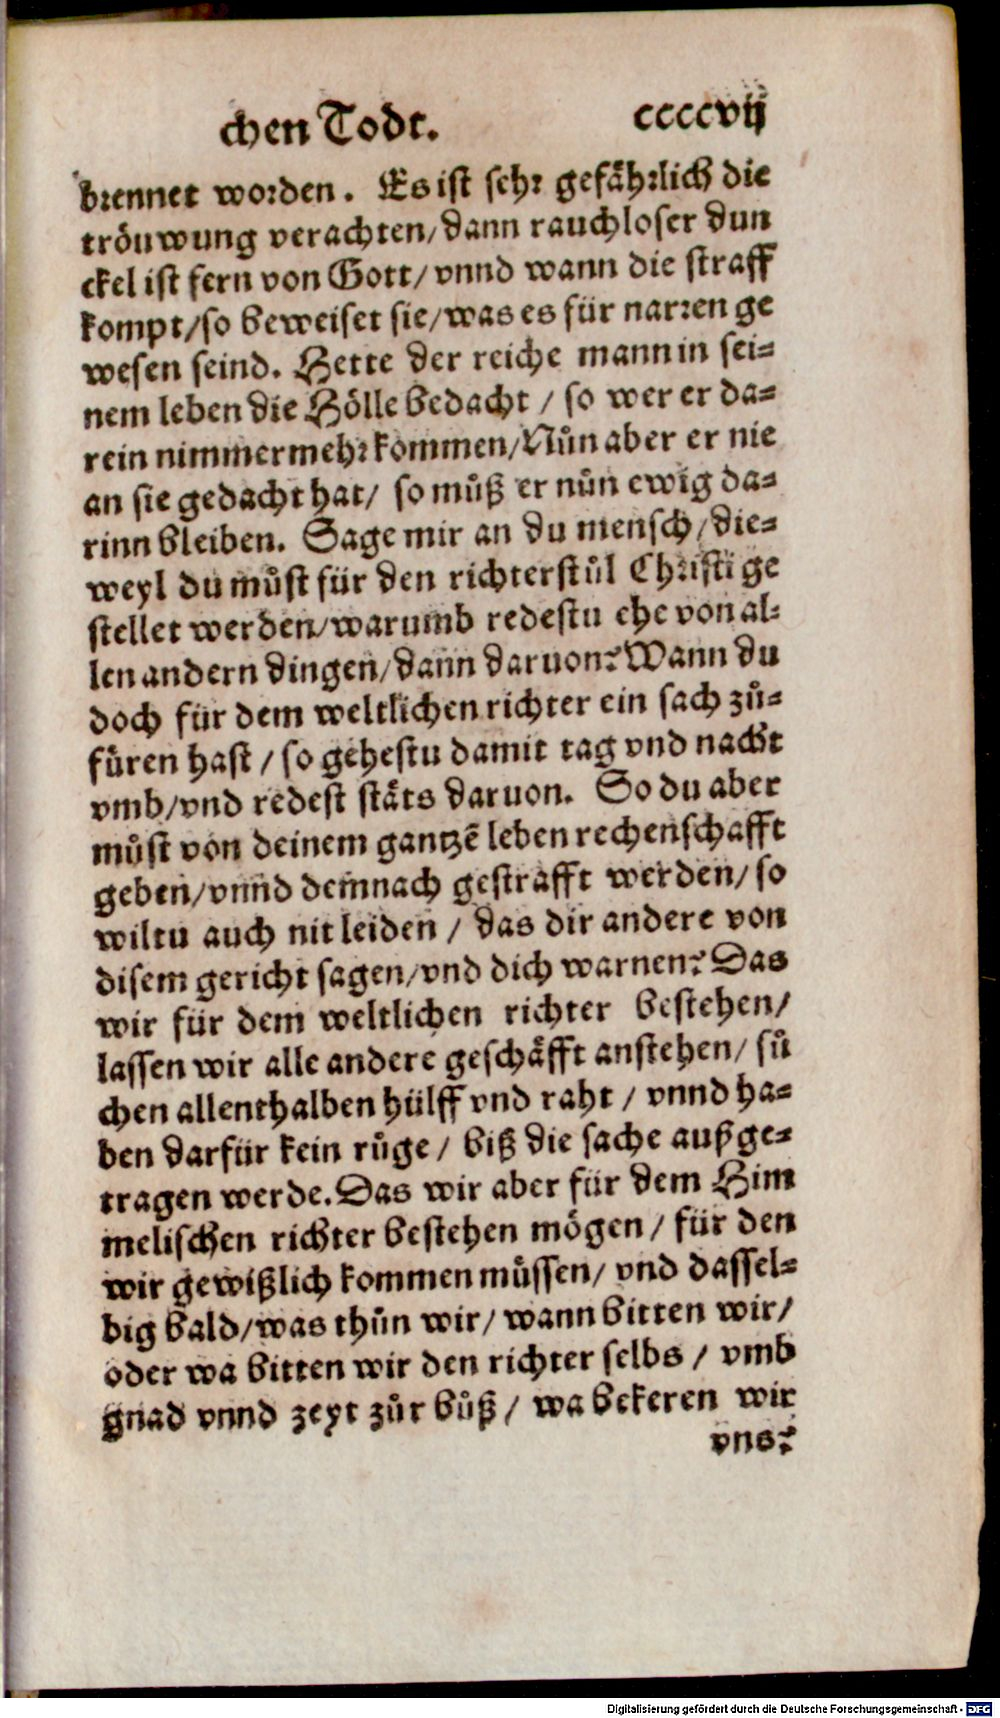 chen Todt. ccccvij
brennet worden. Es ist sehr gefährlich die
tröuwung verachten/dann rauchloser dun
ckel ist fern von Gott/vnnd wann die straff
kompt/so beweiset sie/was es für narren ge
wesen seind. Hette der reiche mann in sei=
nem leben die Hölle bedacht / so wer er da=
rein nimmermehr kommen/Nůn aber er nie
an sie gedacht hat/ so můß er nůn ewig da=
rinn bleiben. Sage mir an du mensch/die=
weyl du můst für den richterstůl Christi ge
stellet werden/warumb redestu ehe von al=
len andern dingen/dann daruon? Wann du
doch für dem weltlichen richter ein sach zů=
füren hast / so gehestu damit tag vnd nacht
vmb/vnd redest stäts daruon. So du aber
můst von deinem gantzē leben rechenschafft
geben/vnnd demnach gestrafft werden/ so
wiltu auch nit leiden / das dir andere von
disem gericht sagen/vnd dich warnen? Das
wir für dem weltlichen richter bestehen/
lassen wir alle andere geschäfft anstehen/ sů
chen allenthalben hülff vnd raht / vnnd ha=
ben darfür kein růge / biß die sache außge=
tragen werde. Das wir aber für dem Him
melischen richter bestehen mögen / für den
wir gewißlich kommen müssen/ vnd dassel=
big bald/was thůn wir/ wann bitten wir/
oder wa bitten wir den richter selbs / vmb
gnad vnnd zeyt zůr bůß / wa bekeren wir
vns?
Digitalisierung gefördert durch die Deutsche Forschungsgemeinschaft - DFG